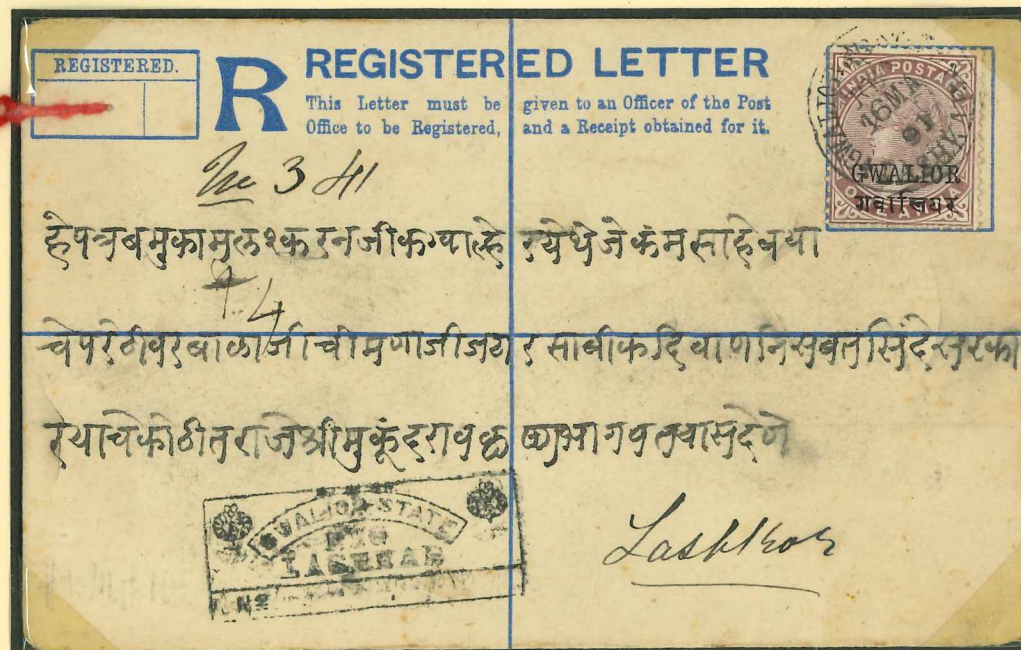 REGISTERED.
R
REGISTERED LETTER
This Letter must be given to an Officer of the Post
Office to be Registered, and a Receipt obtained for it.
INDIA POSTAGE
16 MA
91
GWALIOR
गवालियर
No 341
हे पत्र ब मुकाम लश्कर नजीक ग्वाल्हेर येथे जेकंम साहेब या
चे परेठीवर बाळाजी चीमणाजी
दिवाण सिंदे सरका
र याचे कोठीत राजेश्री मुकूंदराव भागवत यास देणे
GWALIOR STATE
LASHKAR
No
Lashkar